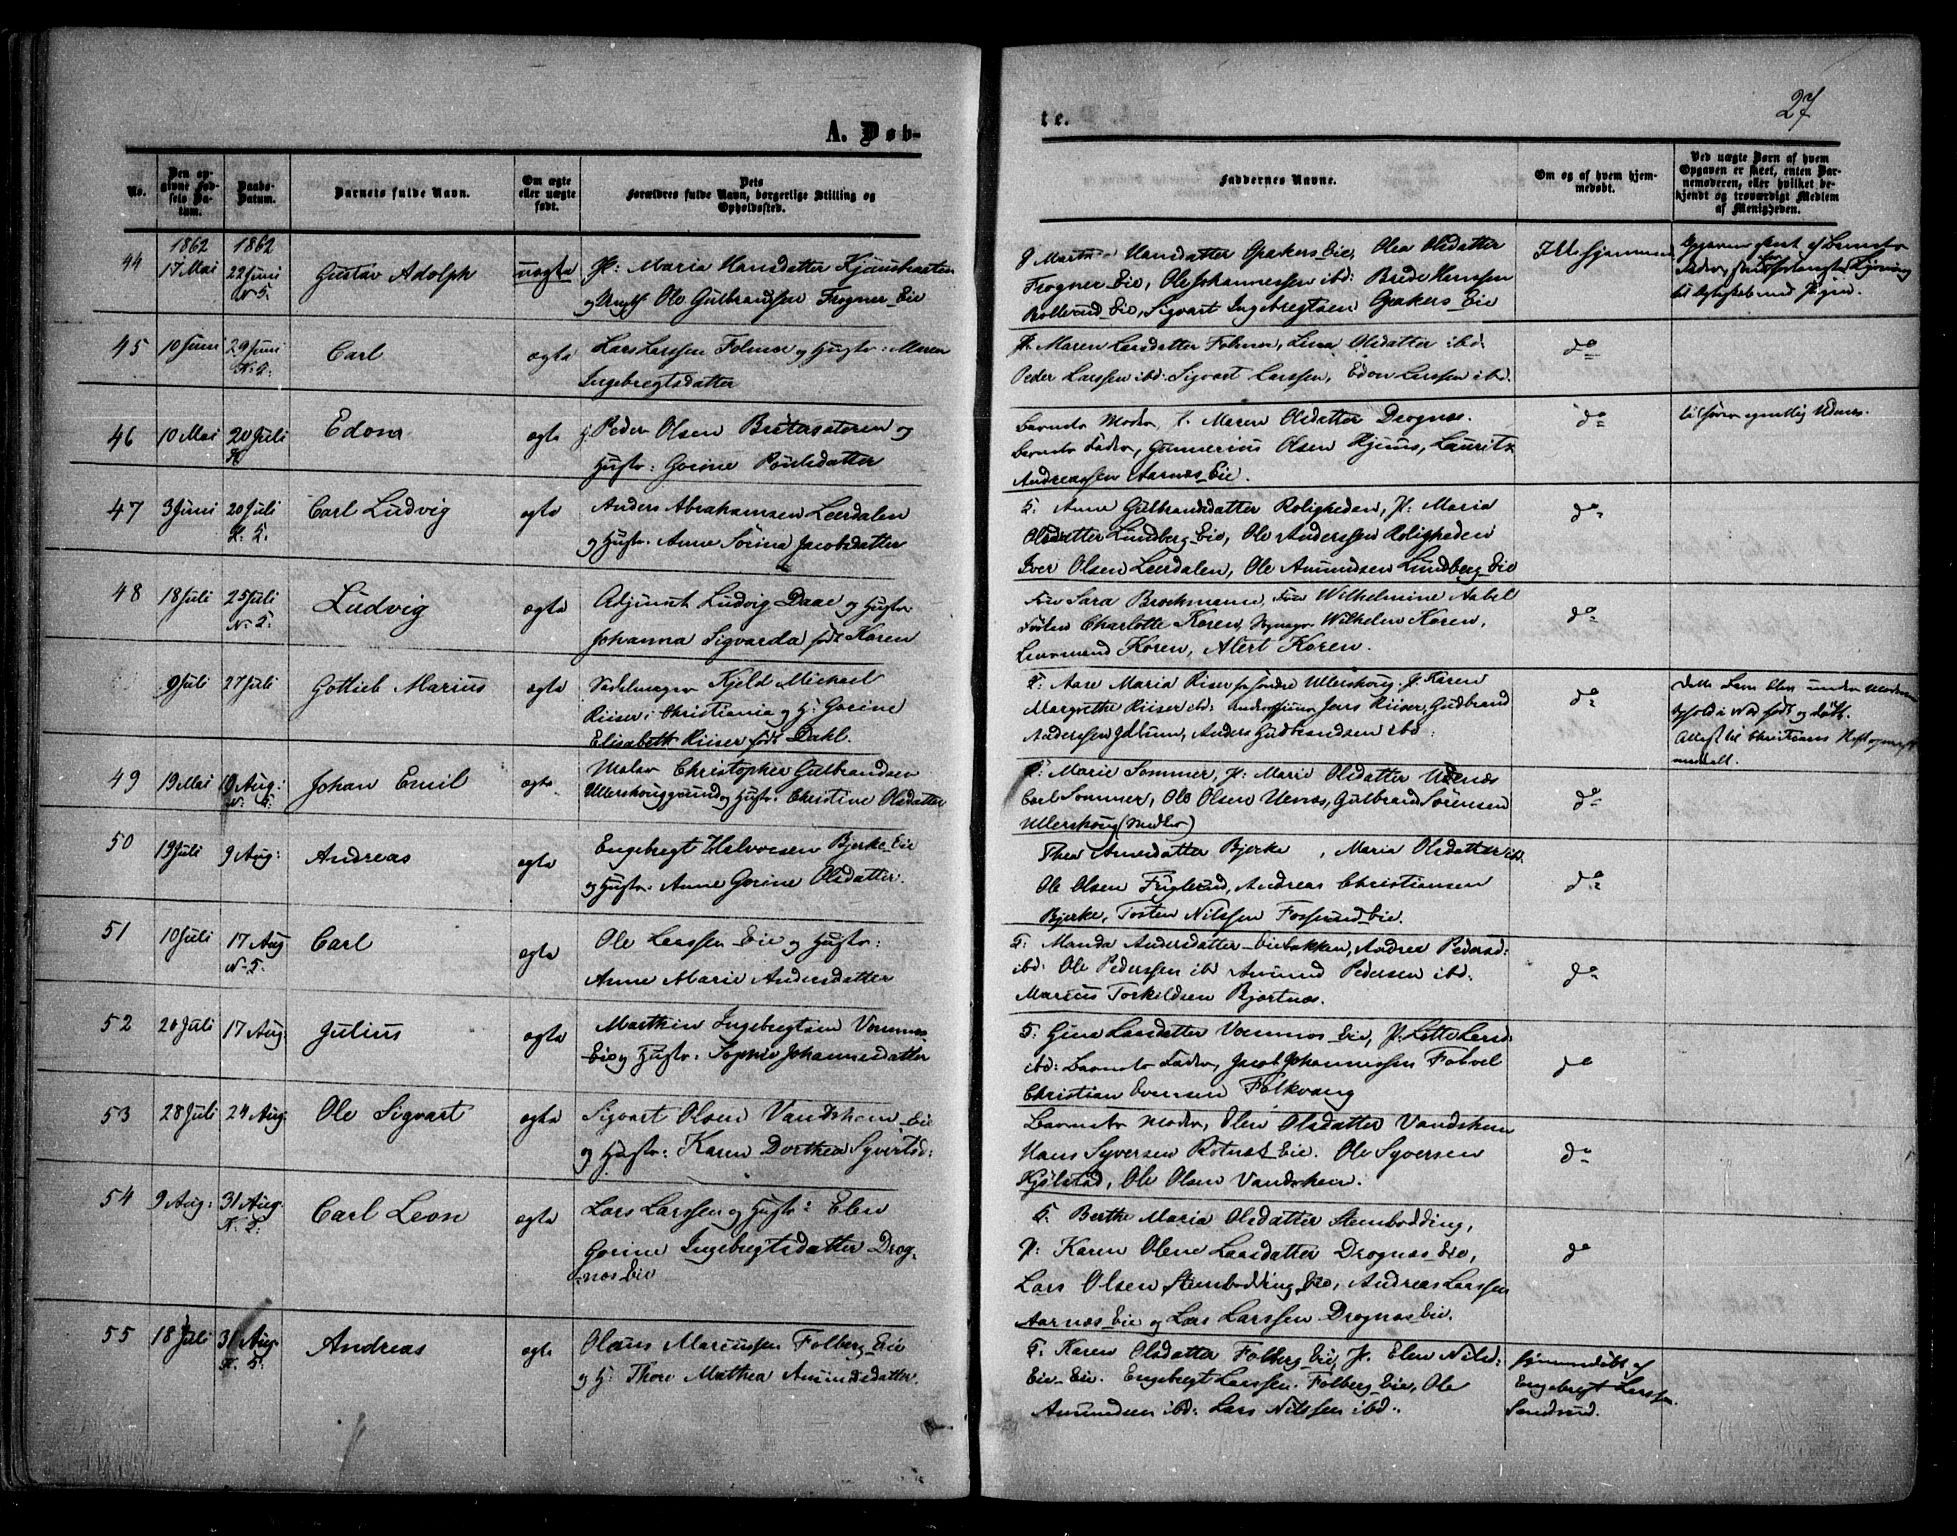 A. Døb-
No.
Den op-
givne Fød-
sels Da-
tum.
Daabs-
Datum.
Barnets fulde Navn.
Om ægte
eller uægte
født.
Dets
Forældres fulde Navn, borgerlige Stilling og
Opholdssted.
44
1862
17 Mai
1862
22 Juni
N. 5.
Gustav Adolph
uægte
P: Maria Hansdatter
og Ole Gulbrandsen Frogner Eie
45
10 Juni
29 Juni
Carl
ægte
Lars Larssen Folmoe og Hustr: Maren
Ingebregtsdatter
46
10 Mai
20 Juli
H
Edon
ægte
Peder Olsen og
Hustr: Gorine Poulsdatter
47
3 Juni
20 Juli
H. 5.
Carl Ludvig
ægte
Anders Abrahamsen Leerdalen
og Hustr: Anne Sørine Jacobsdatter
48
18 Juli
25 Juli
N. 5.
Ludvig
ægte
Adjunct Ludvig Daae og Hustr:
Johanna Sigvarda født Koren
9 Juli
27 Juli
Gottlieb Marius
ægte
Sadelmager Kjeld Michael
Riiser i Christiania og H: Gorine
Elisabeth Riiser født Dahl.
49
19 Mai
9 Aug:
N. 5.
Johan Emil
ægte
Maler Christopher Gulbrandsen
og Hustr: Christine Olsdatter
50
19 Juli
9 Aug:
Andreas
ægte
Engebregt Halvorsen Bjerke Eie
og Hustr: Anne Gorine Olsdatter.
51
10 Juli
17 Aug
N. 5.
Carl
ægte
Ole Larssen Eie og Hustr:
Anne Marie Andersdatter
52
20 Juli
17 Aug:
Julius
ægte
Marthin Ingebregtsen
Eie og Hustr: Sophie Johannesdatter
53
28 Juli
24 Aug.
Ole Sigvart
ægte
Sigvart Olsen Vandshem Eie
og Hustr: Karen Dorthea Syvertsd:
54
9 Aug:
31 Aug.
Carl Leon
ægte
Lars Larssen og Hustr: Elen
Gorine Ingebregtsdatter Drog-
næs Eie
55
18 Juli
31 Aug.
H. 5.
Andreas
ægte
Olaus Marcussen Folberg Eie
og H: Thore Mathea Amundsdatter.
te.
27
Faddernes Navne.
Om og af hvem hjem-
medøbt.
Ved uægte Børn af hvem
Opgaven er skeet, enten Bar-
nemoderen, eller hvilket be-
kjendt og troværdigt Medlem
af Menigheden.
Hansdatter Opakers Eie, Olea Olsdatter
Frogner Eie, Ole Johannessen ibd: Brede Hanssen
Eie, Sigvart Ingebregtsen Opakers Eie
Ikke hjemmed.
P. Maren Larsdatter Folmoe, Lina Olsdatter ibd.
Peder Larssen ibd: Sigvart Larssen, Edon Larssen ibd.
do
Barnets Moder, Maren Olsdatter Drognæs.
Barnets Fader, Gunnerius Olsen Kjuus, Lauritz
Andreassen Aarnæs Eie.
do
G. Anne Gulbrandsdatter Roligheden, P: Maria
Olsdatter Lundberg Eie, Ole Anderssen Roligheden
Iver Olsen Leerdalen, Ole Amundsen Lundberg Eie
do
Fru Sara Brochmann, Fru Wilhelmine Aabel
Frøken Charlotte Koren, Wilhelm Koren,
Koren, Alert Koren.
do
Maria Riiser P. Karen
Margrethe Riiser ibd: Jens Riiser, Gudbrand
Anderssen Anders Gudbrandsen ibd:
do
G: Marie Sommer, P: Marie Olsdatter Udenæs
Carl Sommer, Ole Olsen Udnæs, Gulbrand Sørensen
Ullershoug
do
Thea Arnesdatter Bjerke, Maria Olsdatter ibd.
Ole Olsen Fuglerud, Andreas Christiansen
Bjerke, Torsten Nilssen Fosserud Eie.
do
G: Manda Andersdatter Eiebakken, Andrea Pedersd:
ibd: Ole Pederssen ibd Amund Pedersen ibd:
Marius Torkildsen Bjortnæs.
do
G. Gine Larsdatter Eie, P. Lotte Larsd:
ibd: Barnets Fader, Jacob Johannessen
Christian Evensen Folkvang
do
Barnets Moder, Elen Olsdatter Vandshem
Hans Syversen Rotnæs Eie. Ole Syversen
Kjølstad, Ole Olsen Vandshem.
do
G. Berthe Maria Olsdatter Stenbodding,
P: Karen Olene Larsdatter Drognæs Eie,
Lars Olsen Stenbodding Eie, Andreas Larssen
Aarnæs Eie og Lars Larssen Drognæs Eie.
do
G. Karen Olsdatter Folberg Eie, P. Elen Nilsd:
Eie Eie. Engebregt Larssen Folberg Eie, Ole
Amundsen ibd: Lars Nilssen ibd.
Hjemmedøbt af
Engebregt Larssen
Sandrud.